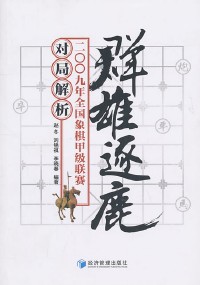 群雄逐鹿
二〇〇九年全国象棋甲级联赛
对局解析
编著
经济管理出版社